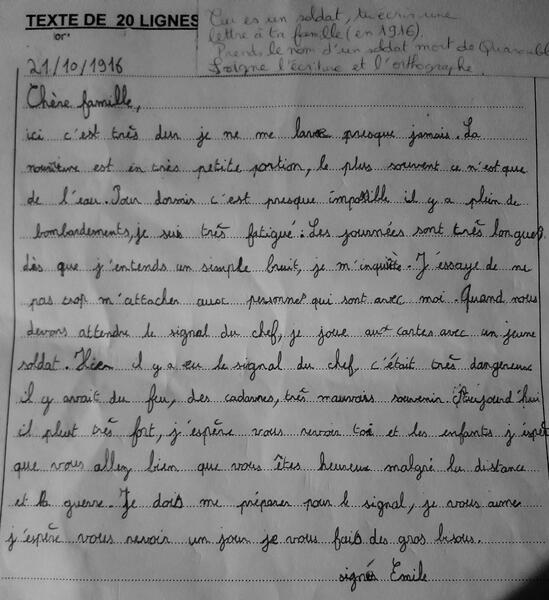 TEXTE DE 20 LIGNES
Tu es un soldat, tu écris une
lettre à ta famille (en 1916).
Prends le nom d'un soldat mort de
Soigne l'écriture et l'orthographe.
21/10/1916
Chère famille,
ici c'est très dur je ne me lave presque jamais. La
nourriture est en très petite portion, le plus souvent ce n'est que
de l'eau. Pour dormir c'est presque impossible il y a plein de
bombardements, je suis très fatigué. Les journées sont très longues
dès que j'entends un simple bruit, je m'inquiète. J'éssaye de ne
pas trop m'attacher aux personnes qui sont avec moi. Quand nous
devons attendre le signal du chef, je joue aux cartes avec un jeune
soldat. Hier il y a eu le signal du chef, c'était très dangereux
il y avait du feu, des cadavres, très mauvais souvenir. Aujourd'hui
il pleut très fort, j'espère vous revoir toi et les enfants j'espère
que vous allez bien que vous êtes heureux malgré la distance
et la guerre. Je dois me préparer pour le signal, je vous aime
j'espère vous revoir un jour je vous fais des gros bisous.
signé Emile